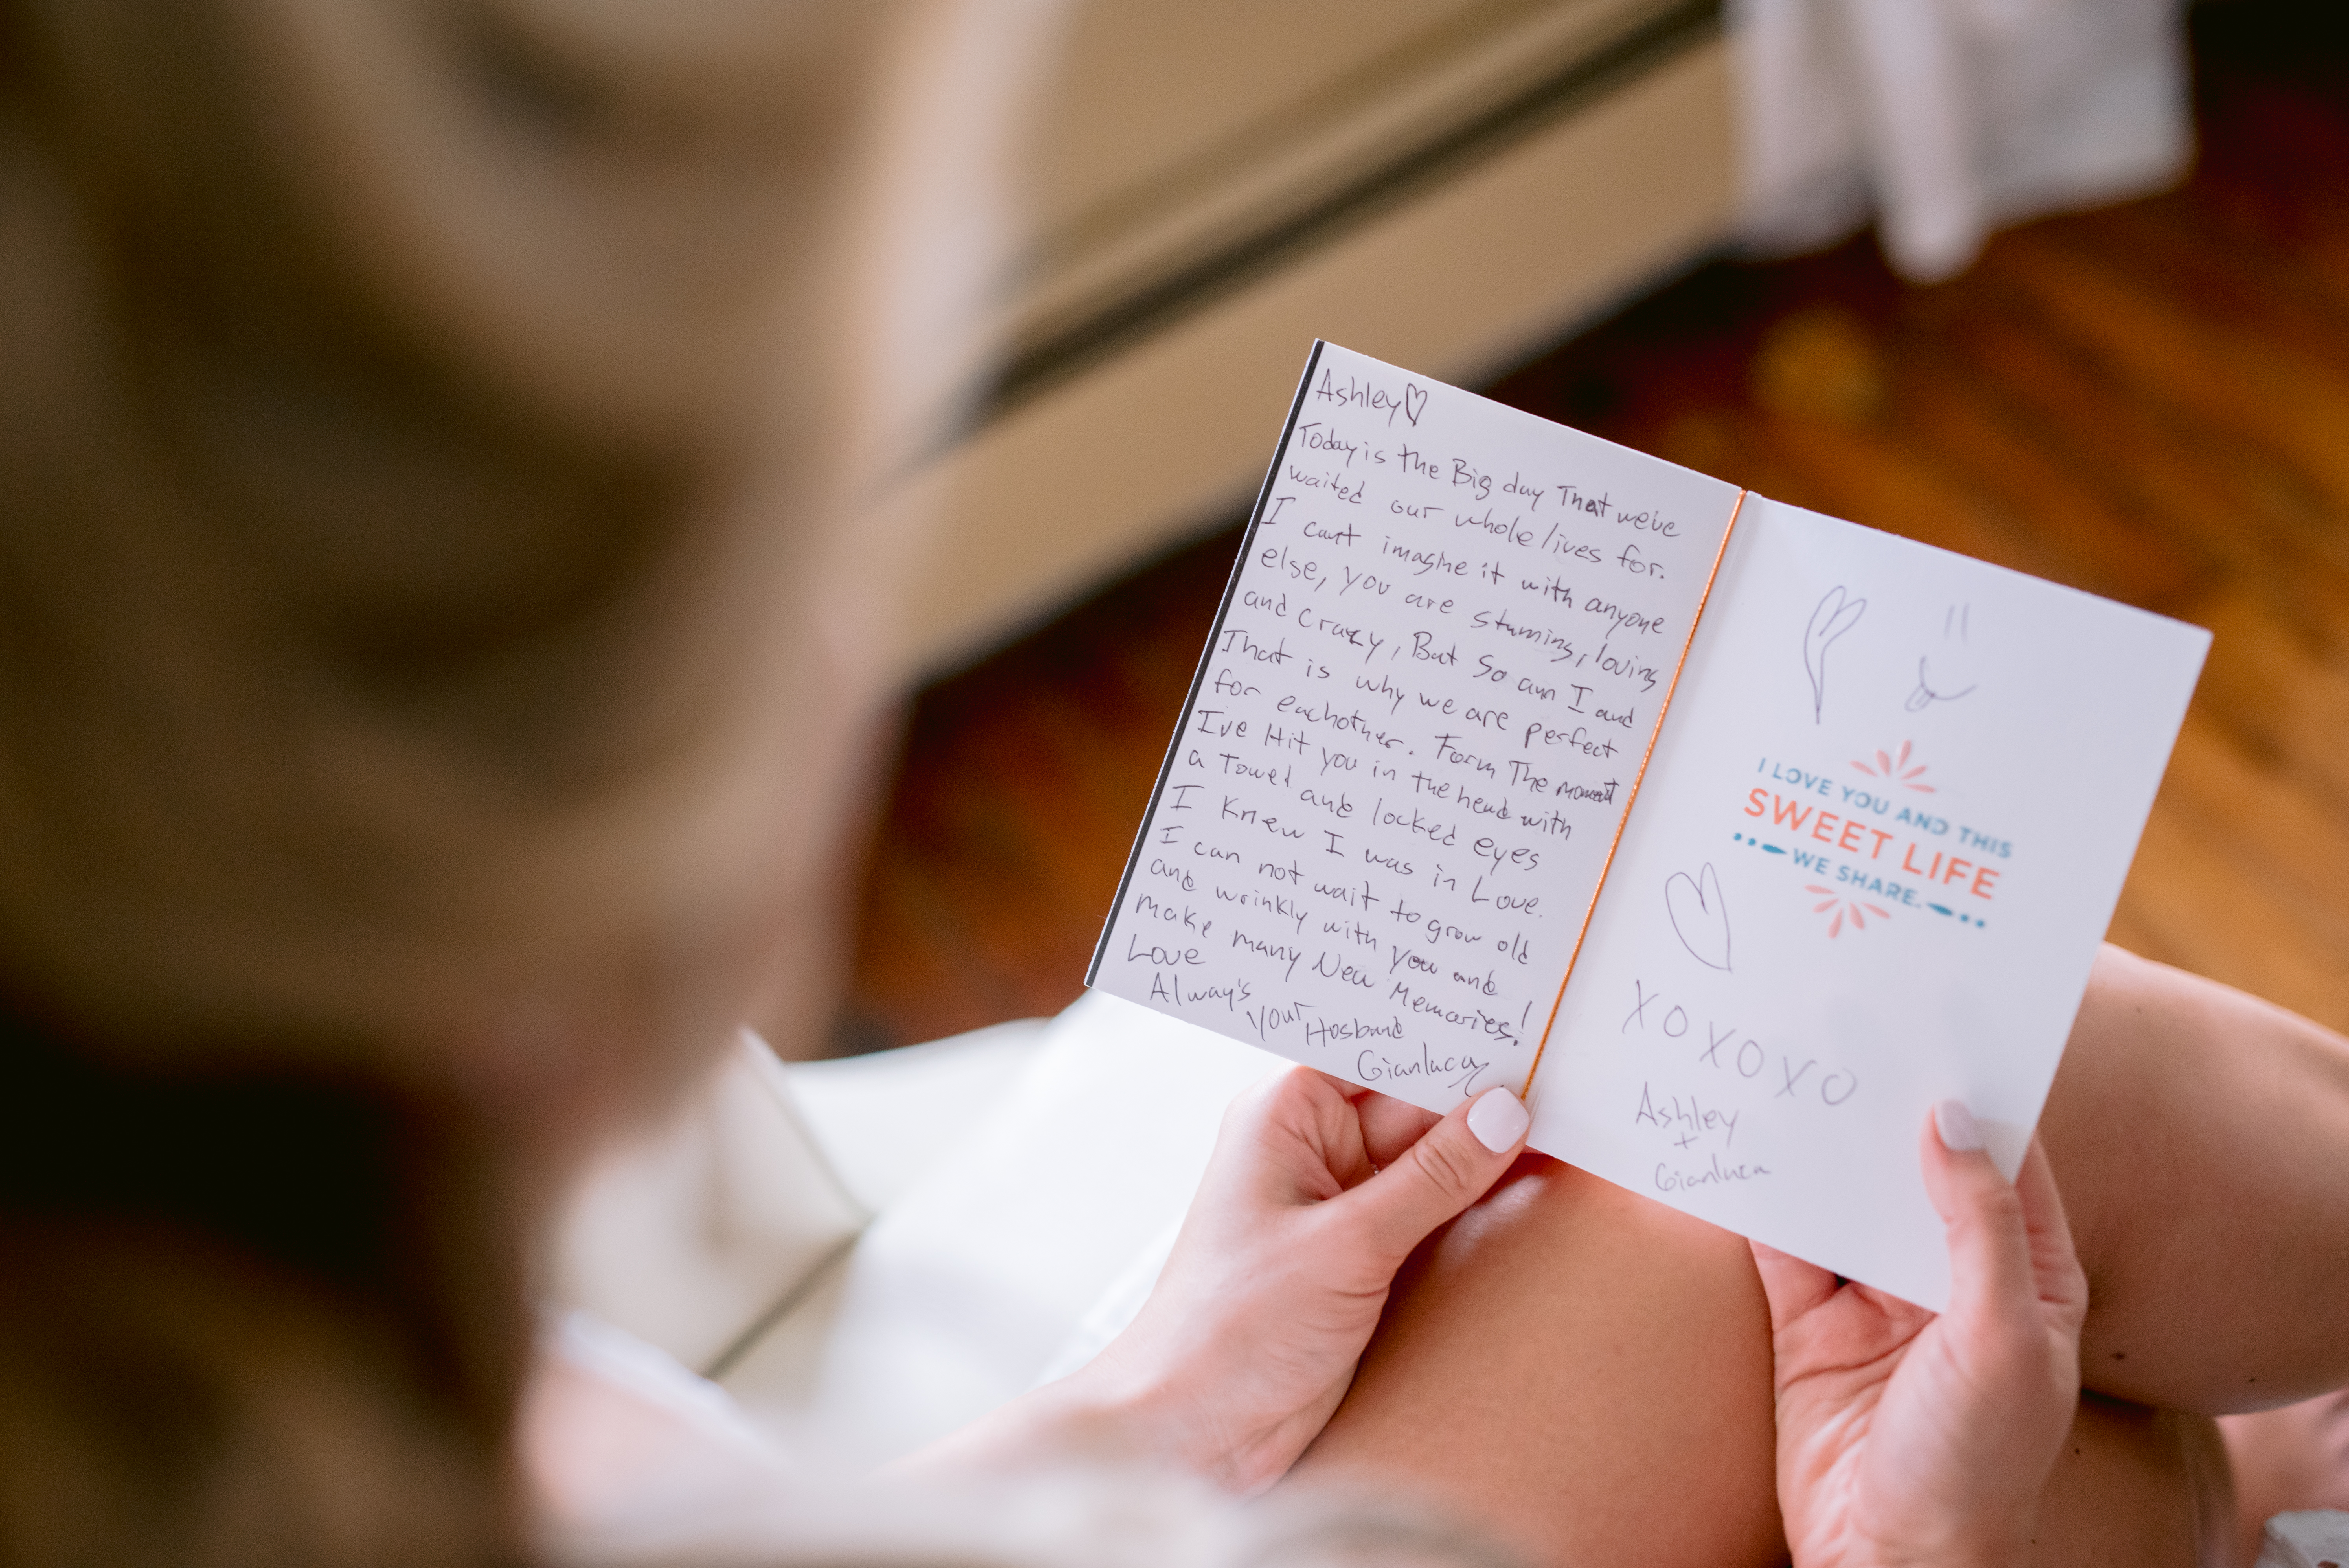 Ashley♡
Today is the Big day That we've
waited our whole lives for.
I can't imagine it with anyone
else, you are stunning, loving
and crazy, But So am I and
That is why we are perfect
for eachother. Form The moment
I've Hit you in the head with
a Towel and locked eyes
I Knew I was in Love.
I can not wait to grow old
and wrinkly with you and
make many New Memories!
Love
Always
your
Husband
Gianluca
I LOVE YOU AND THIS
SWEET LIFE
WE SHARE.
XOXOXO
Ashley
+
Gianluca